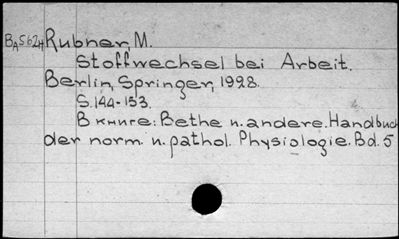 BA562H Rubner, M.
Stoffwechsel bei Arbeit.
Berlin, Springer, 1928.
S. 144-153.
В книге: Bethe u. andere. Handbuch
der norm. u. pathol. Physiologie. Bd. 5